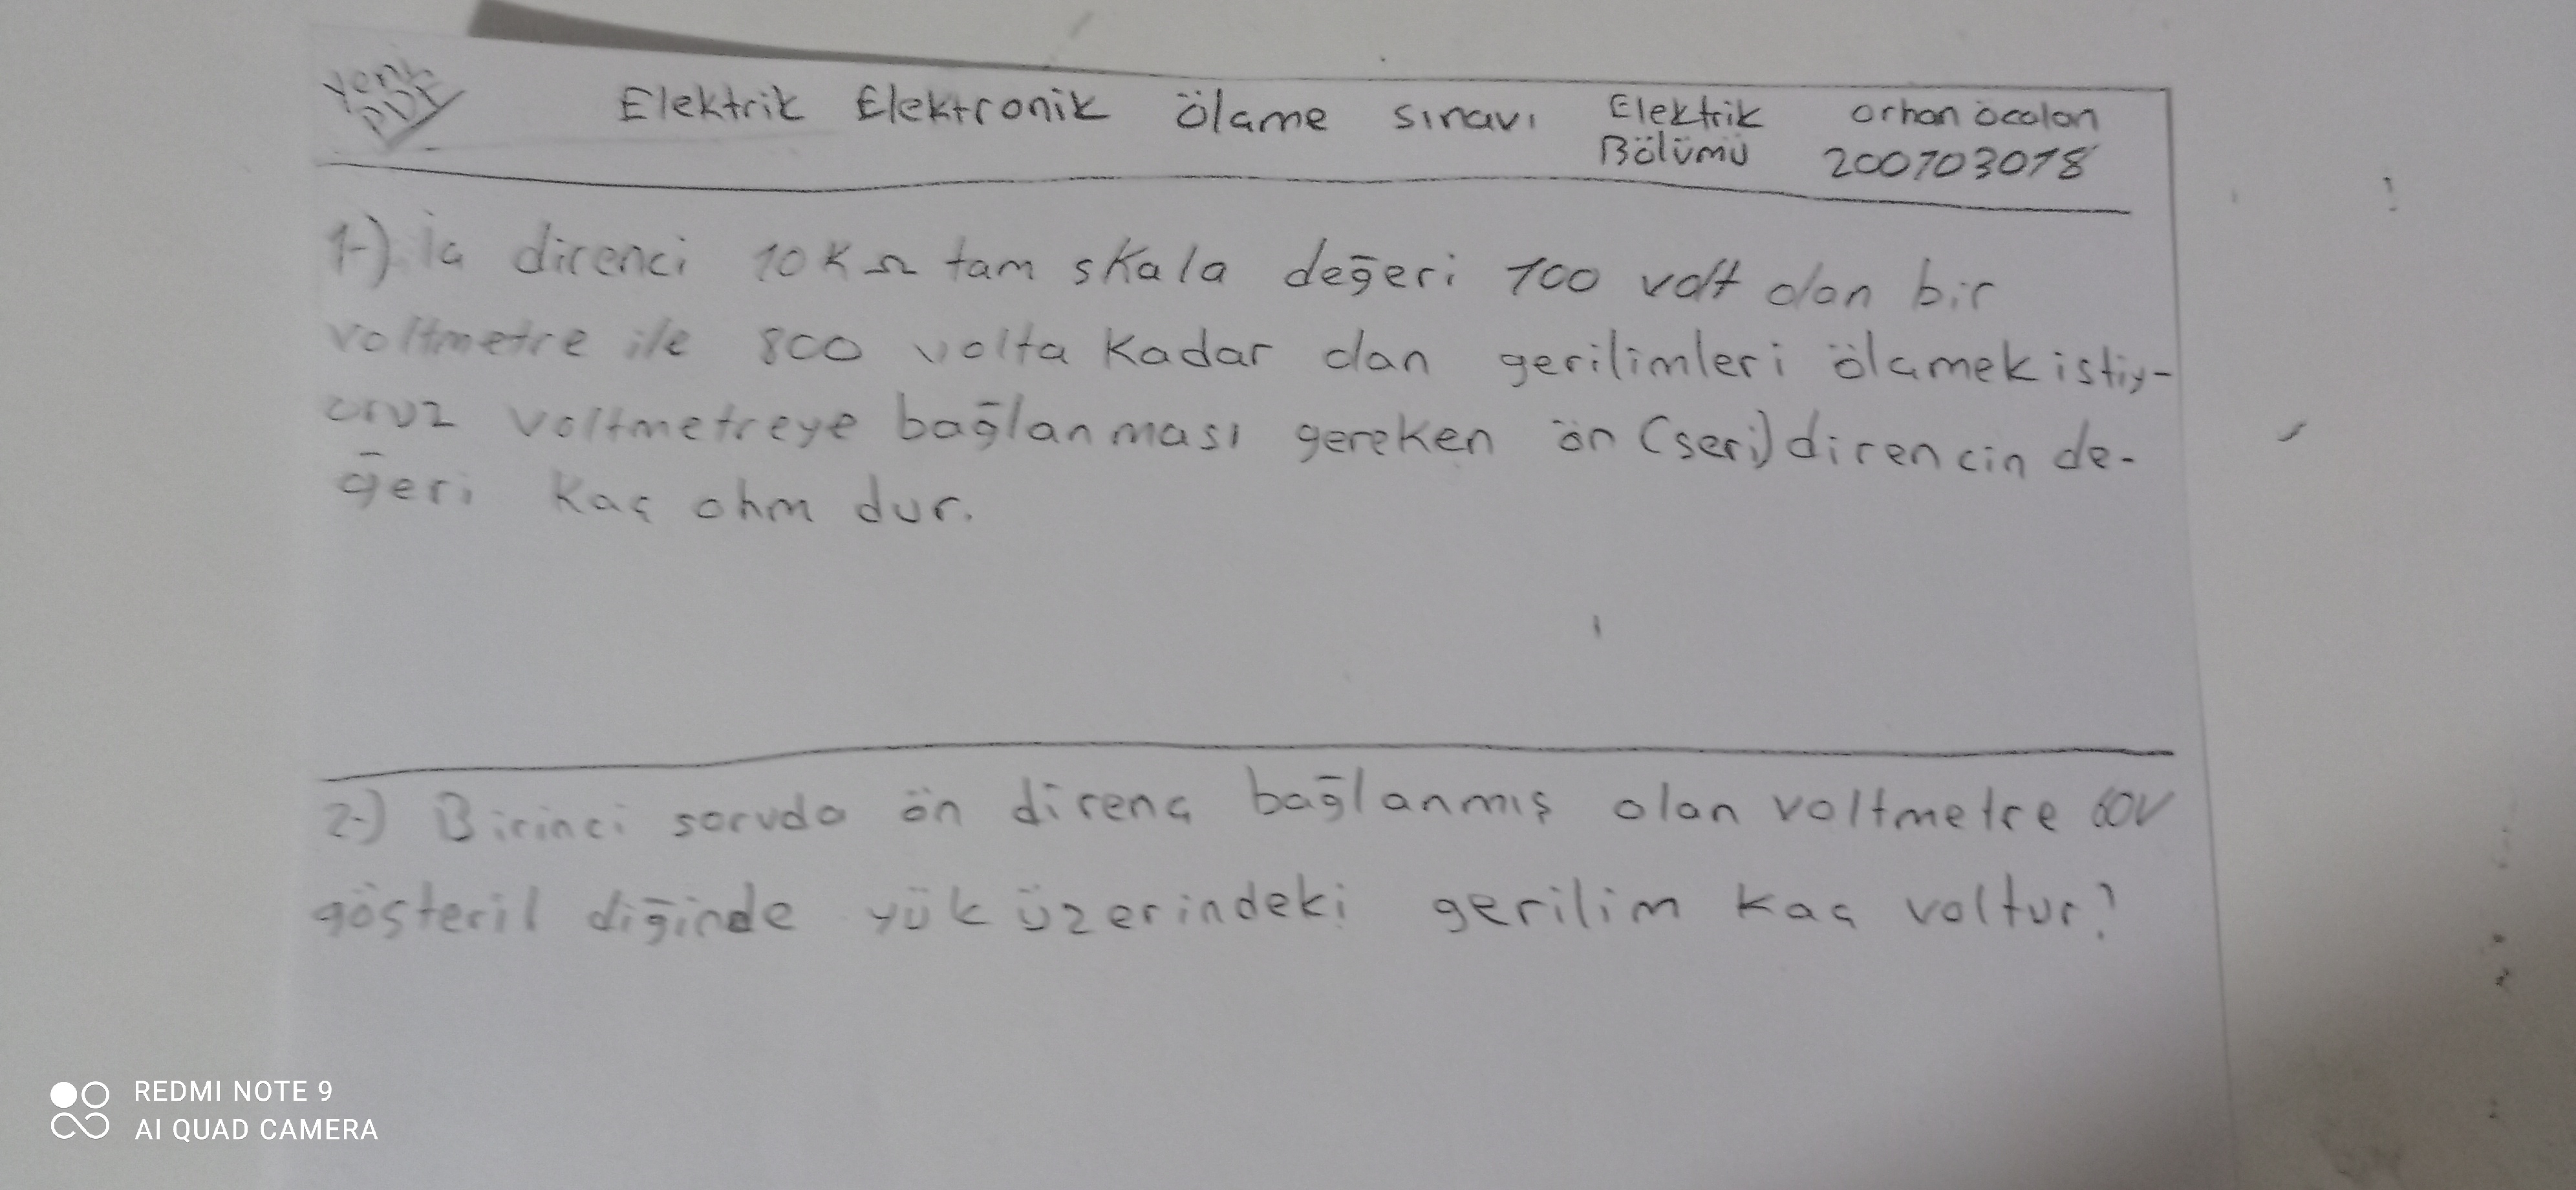 Yeni PDF
Elektrik Elektronik ölçme sınavı Elektrik Bölümü orhan öcalan 200103018
1-) İç direnci 10 K Ω tam skala değeri 100 volt olan bir
voltmetre ile 800 volta kadar olan gerilimleri ölçmek istiy-
oruz voltmetreye bağlanması gereken ön (seri) direncin de-
ğeri kaç ohm dur.
2-) Birinci soruda ön direnç bağlanmış olan voltmetre 60V
gösteril diğinde yük üzerindeki gerilim kaç voltur?
REDMI NOTE 9
AI QUAD CAMERA